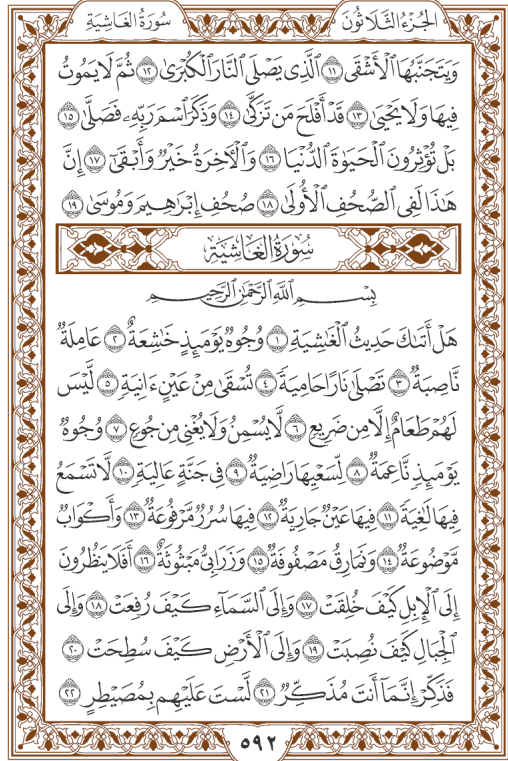 الجُزْءُ الثَّلَاثُونَ
سُورَةُ الغَاشِيَةِ
وَيَتَجَنَّبُهَا ٱلْأَشْقَى ١١ ٱلَّذِى يَصْلَى ٱلنَّارَ ٱلْكُبْرَىٰ ١٢ ثُمَّ لَا يَمُوتُ
فِيهَا وَلَا يَحْيَىٰ ١٣ قَدْ أَفْلَحَ مَن تَزَكَّىٰ ١٤ وَذَكَرَ ٱسْمَ رَبِّهِۦ فَصَلَّىٰ ١٥
بَلْ تُؤْثِرُونَ ٱلْحَيَوٰةَ ٱلدُّنْيَا ١٦ وَٱلْءَاخِرَةُ خَيْرٌ وَأَبْقَىٰٓ ١٧ إِنَّ
هَٰذَا لَفِى ٱلصُّحُفِ ٱلْأُولَىٰ ١٨ صُحُفِ إِبْرَٰهِيمَ وَمُوسَىٰ ١٩
سُورَةُ الغَاشِيَةِ
بِسْمِ ٱللَّهِ ٱلرَّحْمَٰنِ ٱلرَّحِيمِ
هَلْ أَتَىٰكَ حَدِيثُ ٱلْغَٰشِيَةِ ١ وُجُوهٌ يَوْمَئِذٍ خَٰشِعَةٌ ٢ عَامِلَةٌ
نَّاصِبَةٌ ٣ تَصْلَىٰ نَارًا حَامِيَةً ٤ تُسْقَىٰ مِنْ عَيْنٍ ءَانِيَةٍ ٥ لَّيْسَ
لَهُمْ طَعَامٌ إِلَّا مِن ضَرِيعٍ ٦ لَّا يُسْمِنُ وَلَا يُغْنِى مِن جُوعٍ ٧ وُجُوهٌ
يَوْمَئِذٍ نَّاعِمَةٌ ٨ لِّسَعْيِهَا رَاضِيَةٌ ٩ فِى جَنَّةٍ عَالِيَةٍ ١٠ لَّا تَسْمَعُ
فِيهَا لَٰغِيَةً ١١ فِيهَا عَيْنٌ جَارِيَةٌ ١٢ فِيهَا سُرُرٌ مَّرْفُوعَةٌ ١٣ وَأَكْوَابٌ
مَّوْضُوعَةٌ ١٤ وَنَمَارِقُ مَصْفُوفَةٌ ١٥ وَزَرَابِىُّ مَبْثُوثَةٌ ١٦ أَفَلَا يَنظُرُونَ
إِلَى ٱلْإِبِلِ كَيْفَ خُلِقَتْ ١٧ وَإِلَى ٱلسَّمَآءِ كَيْفَ رُفِعَتْ ١٨ وَإِلَى
ٱلْجِبَالِ كَيْفَ نُصِبَتْ ١٩ وَإِلَى ٱلْأَرْضِ كَيْفَ سُطِحَتْ ٢٠
فَذَكِّرْ إِنَّمَآ أَنتَ مُذَكِّرٌ ٢١ لَّسْتَ عَلَيْهِم بِمُصَيْطِرٍ ٢٢
٥٩٢